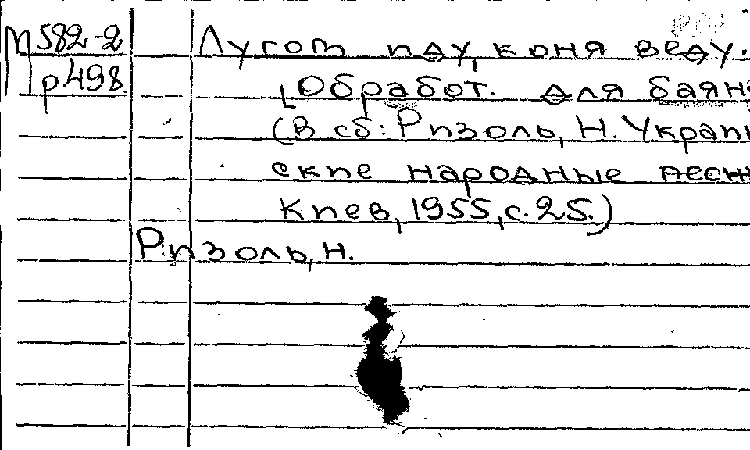 М 582-2
р 498
Лугом иду, коня веду.
[Обработ. для баян
(В сб: Ризоль, Н. Украин
ские народные песн
Киев, 1955, с. 25.)
Ризоль, Н.